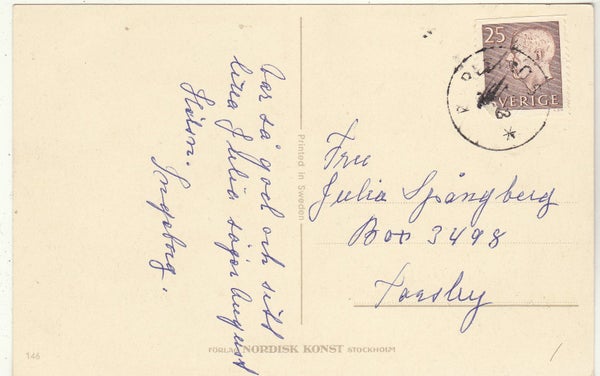 Var så god och sitt
lilla Julia säger August
Hälsn. Ingeborg.
Printed in Sweden
25
SVERIGE
Fru
Julia Spångberg
Box 3498
Torsby
146
FÖRLAG NORDISK KONST STOCKHOLM